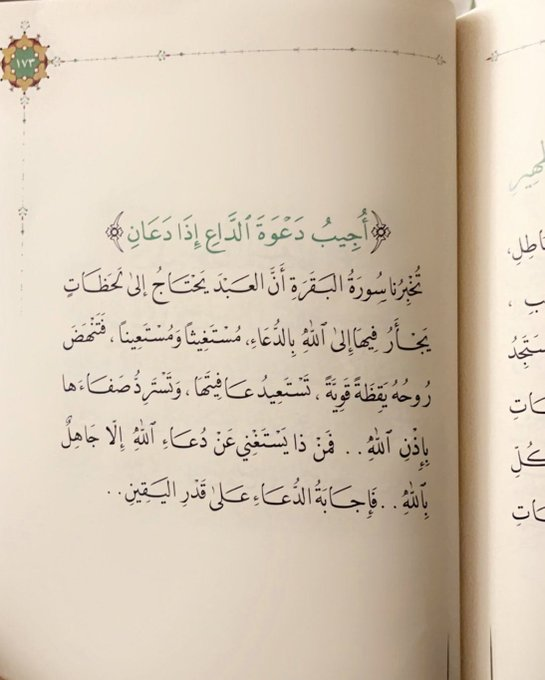 ١٧٣
﴿أُجِيبُ دَعْوَةَ ٱلدَّاعِ إِذَا دَعَانِ﴾
تُخْبِرُنا سُورَةُ البَقَرَةِ أَنَّ العَبْدَ يَحْتَاجُ إلىٰ لَحَظَاتٍ
يَجْأَرُ فِيهَا إِلىٰ اللهِ بِالدُّعَاءِ، مُسْتَغِيثاً وَمُسْتَعِيناً، فَتَنْهَضَ
رُوحُهُ يَقِظَةً قَوِيَّةً، تَسْتَعِيدُ عَافِيتَهَا، وَتَسْتَرِدُّ صَفَاءَهَا
بِإِذْنِ اللهِ.. فَمَنْ ذا يَسْتَغْنِي عَنْ دُعَاءِ اللهِ إِلَّا جَاهِلٌ
بِاللهِ.. فَإِجَابَةُ الدُّعَاءِ عَلىٰ قَدْرِ اليَقِينِ..
ـهِيرِ
ـاطِلِ،
ـبِ،
ـسْتَجِدُ
ـاتِ
كُلِّ
ـاتِ